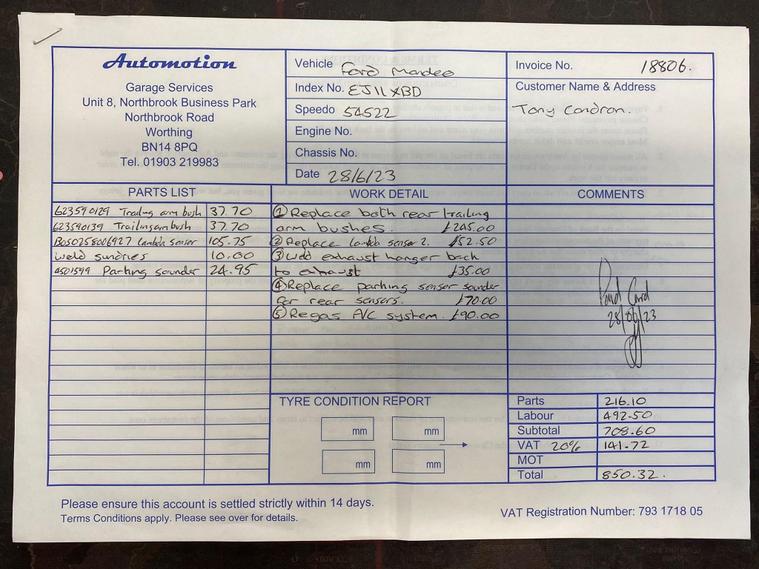 Automotion
Garage Services
Unit 8, Northbrook Business Park
Northbrook Road
Worthing
BN14 8PQ
Tel. 01903 219983
Vehicle Ford Mondeo
Index No. EJ11 XBD
Speedo 54522
Engine No.
Chassis No.
Date 28/6/23
Invoice No. 18806.
Customer Name & Address
Tony Condron.
PARTS LIST
623590129 Trailing arm bush 37.70
623590139 Trailing arm bush 37.70
BOS0258006927 lambda sensor 105.75
weld sundries 10.00
4501599 Parking sounder 24.95
WORK DETAIL
① Replace both rear trailing
arm bushes. £245.00
② Replace lambda sensor 2. £52.50
③ Weld exhaust hanger back
to exhaust £35.00
④ Replace parking sensor sounder
for rear sensors. £70.00
⑤ Regas A/C system. £90.00
COMMENTS
Paid Card
28/06/23
TYRE CONDITION REPORT
mm mm
mm mm
Parts 216.10
Labour 492.50
Subtotal 708.60
VAT 20% 141.72
MOT
Total 850.32.
Please ensure this account is settled strictly within 14 days.
Terms Conditions apply. Please see over for details.
VAT Registration Number: 793 1718 05